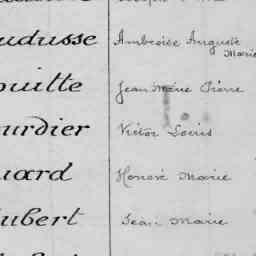 udusse Ambroise Auguste
Marie
ouitte Jean Marie Pierre
urdier Victor Louis
uard Honoré Marie
ubert Jean Marie